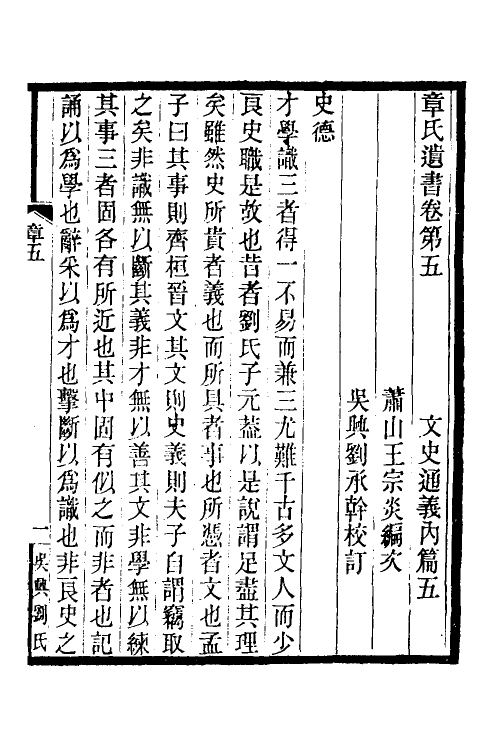 章氏遺書卷第五　　文史通義內篇五
蕭山王宗炎編次
吳興劉承幹校訂
史德
才學識三者得一不易而兼三尤難千古多文人而少
良史職是故也昔者劉氏子元葢以是說謂足盡其理
矣雖然史所貴者義也而所具者事也所憑者文也孟
子曰其事則齊桓晉文其文則史義則夫子自謂竊取
之矣非識無以斷其義非才無以善其文非學無以練
其事三者固各有所近也其中固有似之而非者也記
誦以爲學也辭采以爲才也擊斷以爲識也非良史之
章五
一
吳興劉氏